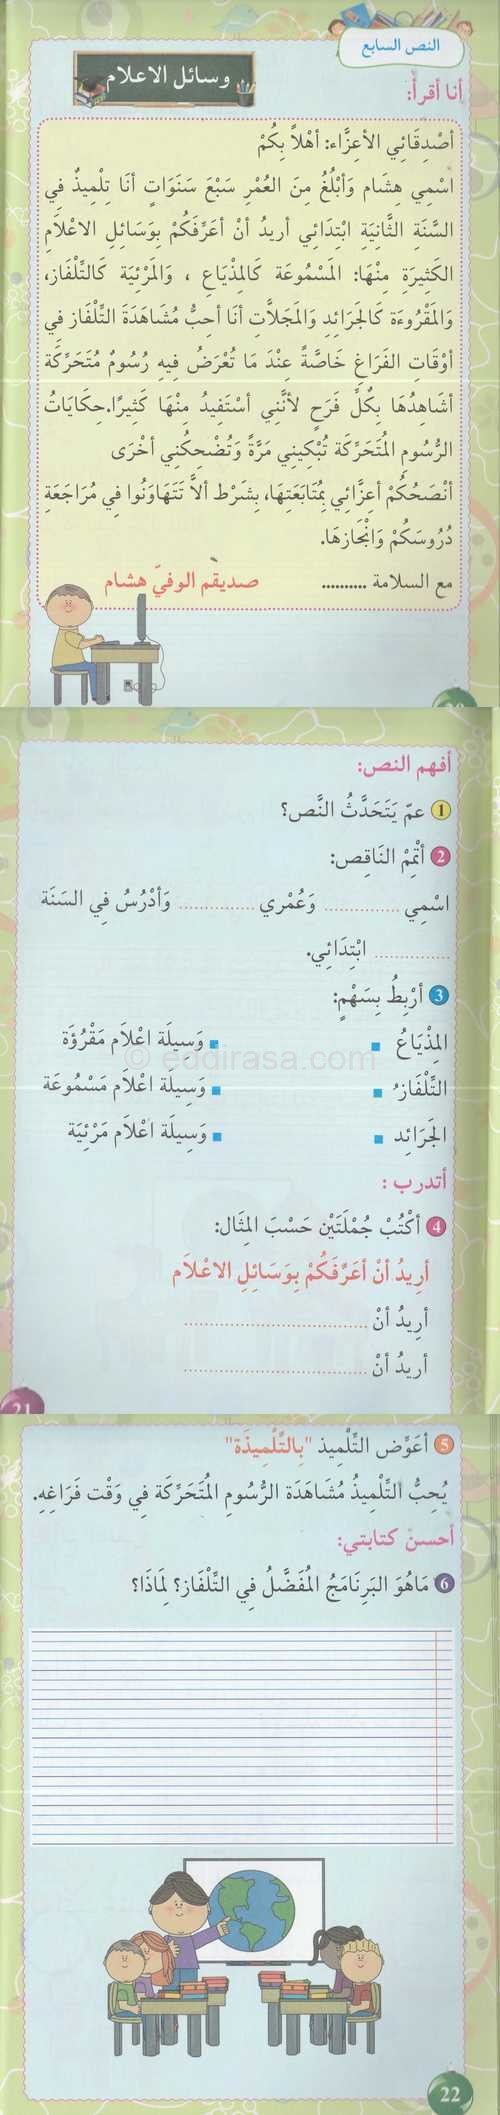 النص السابع
وسائل الاعلام
أنا أقرأ:
أصْدِقَائِي الأعِزَّاء: أهْلاً بِكُمْ
اسْمِي هِشَام وَأبْلُغُ منَ العُمْرِ سَبْعَ سَنَوَاتٍ أنَا تِلْمِيذٌ فِي
السَّنَةِ الثَّانِيَةِ ابْتِدَائِي أريدُ أنْ أعَرِّفَكُمْ بِوَسَائِلِ الاعْلاَمِ
الكَثِيرَة مِنْهَا: المَسْمُوعَة كَالمِذْيَاعِ ، وَالمَرْئِيَة كَالتِّلْفَاز،
وَالمَقْرُوءَة كَالجَرَائِد وَالمَجَلاَّتِ أنَا أحِبُّ مُشَاهَدَةَ التِّلْفَاز فِي
أوْقَاتِ الفَرَاغِ خَاصَّةً عِنْدَ مَا تُعْرَضُ فِيهِ رُسُومٌ مُتَحَرِّكَة
أشَاهِدُهَا بِكُلِّ فَرَحٍ لأنَّنِي أسْتَفِيدُ مِنْهَا كَثِيرًا.حِكَايَاتُ
الرُّسُومِ المُتَحَرِّكَة تُبْكِينِي مَرَّةً وَتُضْحِكُنِي أخْرَى
أنْصَحُكُمْ أعِزَّائِي بِمُتَابَعَتِهَا، بِشَرْط ألاَّ تَتَهَاوَنُوا فِي مُرَاجَعَةِ
دُرُوسَكُمْ وَانْجَازهَا.
مع السلامة .......... صديقم الوفيّ هشام
20
أفهم النص:
1 عمّ يَتَحَدَّثُ النَّص؟
2 أتْمِمْ النَاقِص:
اسْمِي .................. وَعُمْري .................. وَأدْرُسُ فِي السَنَة
.................. ابْتِدَائِي.
3 أرْبِطُ بِسَهْمٍ:
المِذْيَاعُ وَسِيلَة اعْلاَم مَقْرُوُة
التِّلْفَازُ وَسِيلة اعْلاَم مَسْمُوعَة
الجَرَائِد وَسِيلَة اعْلاَم مَرْئِيَة
© eddirasa.com
أتدرب :
4 أكْتُبْ جُمْلَتَيْن حَسَبَ المِثَال:
أرِيدُ أنْ أعَرِّفَكُمْ بِوَسَائِلِ الاعْلاَم
أرِيدُ أنْ ..................................
أرِيدُ أنْ ..................................
21
5 أعَوِّض التِّلْمِيذ "بِالتِّلْمِيذَة"
يُحِبُّ التِّلْمِيذُ مُشَاهَدَة الرُّسُومِ المُتَحَرِّكَة فِي وَقْت فَرَاغِهِ.
أحسن كتابتي:
6 مَاهُوَ البَرِنَامَجُ المُفَضَّلُ فِي التِّلْفَاز؟ لِمَاذَا؟
22